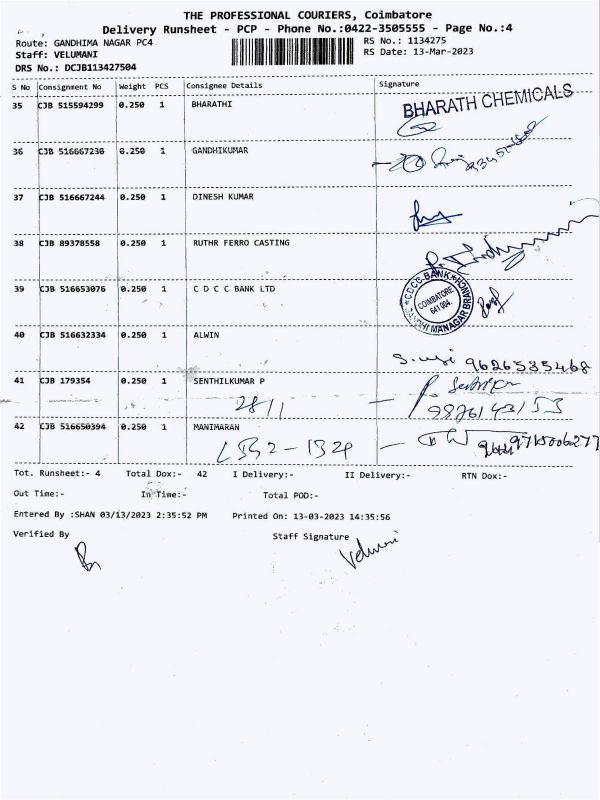 THE PROFESSIONAL COURIERS, Coimbatore
Delivery Runsheet - PCP - Phone No.:0422-3505555 - Page No.:4
Route: GANDHIMA NAGAR PC4
RS No.: 1134275
Staff: VELUMANI
RS Date: 13-Mar-2023
DRS No.: DCJB113427504
S No Consignment No Weight PCS Consignee Details Signature
35 CJB 515594299 0.250 1 BHARATHI
BHARATH CHEMICALS
36 CJB 516667230 0.250 1 GANDHIKUMAR
37 CJB 516667244 0.250 1 DINESH KUMAR
38 CJB 89378558 0.250 1 RUTHR FERRO CASTING
39 CJB 516653076 0.250 1 C D C C BANK LTD
CDCC BANK
COIMBATORE
641 004.
GANDHI MANAGAR BRANCH
40 CJB 516632334 0.250 1 ALWIN
9626535468
41 CJB 179354 0.250 1 SENTHILKUMAR P
28/1
42 CJB 516650394 0.250 1 MANIMARAN
9715006277
Tot. Runsheet:- 4 Total Dox:- 42 I Delivery:- II Delivery:- RTN Dox:-
Out Time:- In Time:- Total POD:-
Entered By :SHAN 03/13/2023 2:35:52 PM Printed On: 13-03-2023 14:35:56
Verified By Staff Signature
Velumani